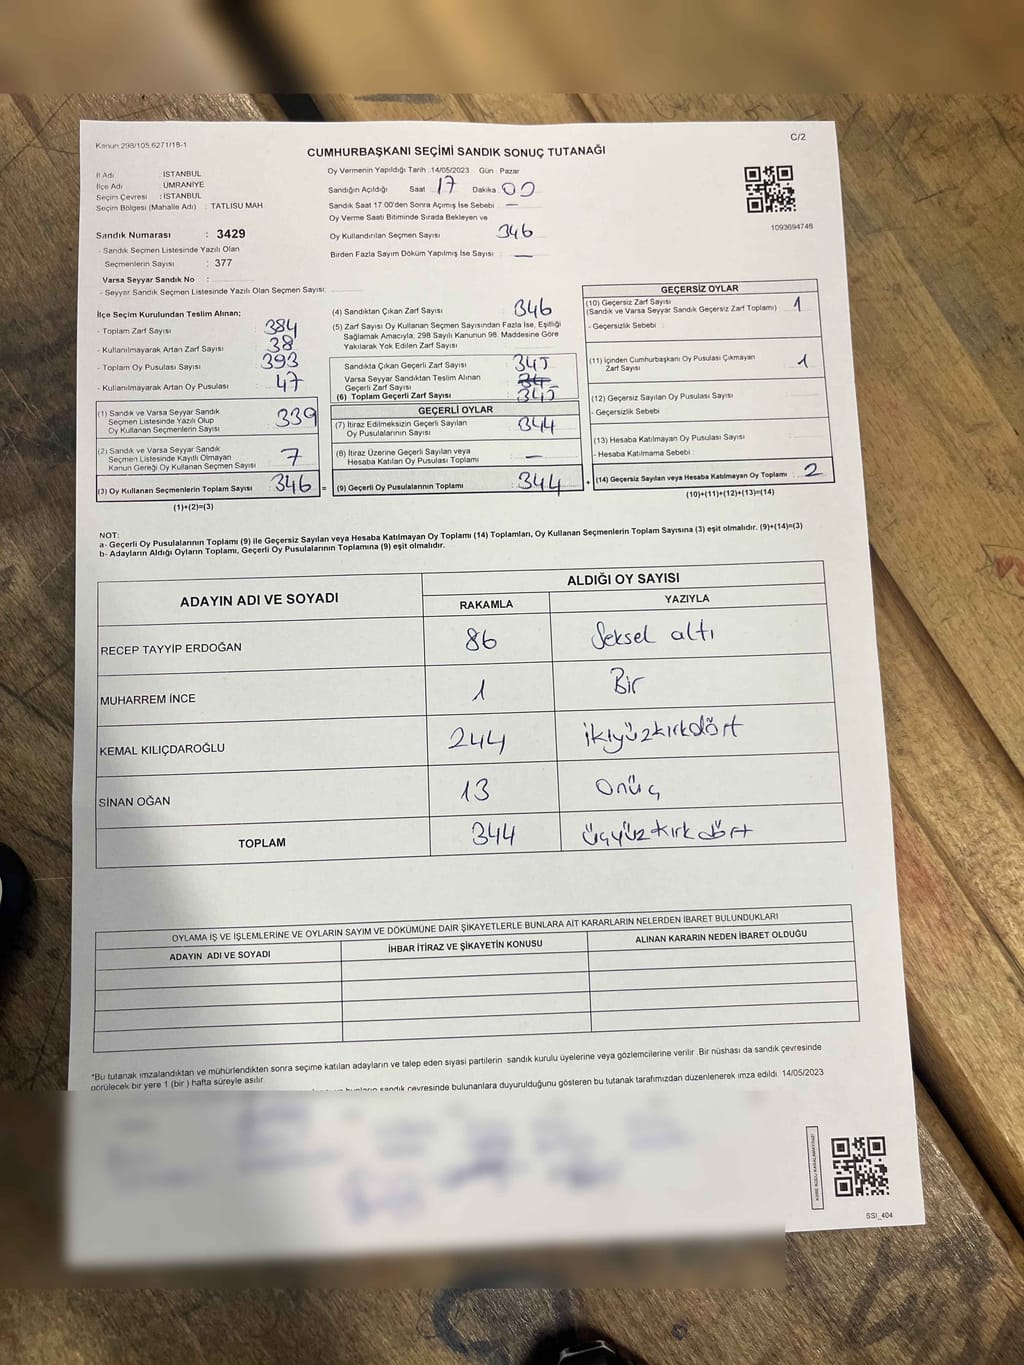 Kanun 298/105;6271/18-1
C/2
CUMHURBAŞKANI SEÇİMİ SANDIK SONUÇ TUTANAĞI
İl Adı : İSTANBUL
İlçe Adı : ÜMRANİYE
Seçim Çevresi : İSTANBUL
Seçim Bölgesi (Mahalle Adı) : TATLISU MAH.
Sandık Numarası : 3429
- Sandık Seçmen Listesinde Yazılı Olan
Seçmenlerin Sayısı : 377
Varsa Seyyar Sandık No :
- Seyyar Sandık Seçmen Listesinde Yazılı Olan Seçmen Sayısı:
Oy Vermenin Yapıldığı Tarih :14/05/2023 Gün : Pazar
Sandığın Açıldığı Saat : 17 Dakika : 00
Sandık Saat 17.00'den Sonra Açımış İse Sebebi : —
Oy Verme Saati Bitiminde Sırada Bekleyen ve
Oy Kullandırılan Seçmen Sayısı 346
Birden Fazla Sayım Döküm Yapılmış İse Sayısı : —
1093694748
İlçe Seçim Kurulundan Teslim Alınan;
- Toplam Zarf Sayısı : 384
- Kullanılmayarak Artan Zarf Sayısı : 38
- Toplam Oy Pusulası Sayısı : 393
- Kullanılmayarak Artan Oy Pusulası : 47
(1) Sandık ve Varsa Seyyar Sandık
Seçmen Listesinde Yazılı Olup
Oy Kullanan Seçmenlerin Sayısı : 339
(2) Sandık ve Varsa Seyyar Sandık
Seçmen Listesinde Kayıtlı Olmayan
Kanun Gereği Oy Kullanan Seçmen Sayısı : 7
(3) Oy Kullanan Seçmenlerin Toplam Sayısı : 346
(1)+(2)=(3)
(4) Sandıktan Çıkan Zarf Sayısı : 346
(5) Zarf Sayısı Oy Kullanan Seçmen Sayısından Fazla İse, Eşitliği
Sağlamak Amacıyla, 298 Sayılı Kanunun 98. Maddesine Göre
Yakılarak Yok Edilen Zarf Sayısı :
Sandıkta Çıkan Geçerli Zarf Sayısı : 345
Varsa Seyyar Sandıktan Teslim Alınan
Geçerli Zarf Sayısı :
(6) Toplam Geçerli Zarf Sayısı : 345
GEÇERLİ OYLAR
(7) İtiraz Edilmeksizin Geçerli Sayılan
Oy Pusulalarının Sayısı : 344
(8) İtiraz Üzerine Geçerli Sayılan veya
Hesaba Katılan Oy Pusulası Toplamı : —
= (9) Geçerli Oy Pusulalarının Toplamı : 344
GEÇERSİZ OYLAR
(10) Geçersiz Zarf Sayısı : 1
(Sandık ve Varsa Seyyar Sandık Geçersiz Zarf Toplamı)
- Geçersizlik Sebebi :
(11) İçinden Cumhurbaşkanı Oy Pusulası Çıkmayan
Zarf Sayısı : 1
(12) Geçersiz Sayılan Oy Pusulası Sayısı :
- Geçersizlik Sebebi
(13) Hesaba Katılmayan Oy Pusulası Sayısı :
- Hesaba Katılmama Sebebi
+ (14) Geçersiz Sayılan veya Hesaba Katılmayan Oy Toplamı : 2
(10)+(11)+(12)+(13)=(14)
NOT:
a- Geçerli Oy Pusulalarının Toplamı (9) ile Geçersiz Sayılan veya Hesaba Katılmayan Oy Toplamı (14) Toplamları, Oy Kullanan Seçmenlerin Toplam Sayısına (3) eşit olmalıdır. (9)+(14)=(3)
b- Adayların Aldığı Oyların Toplamı, Geçerli Oy Pusulalarının Toplamına (9) eşit olmalıdır.
ADAYIN ADI VE SOYADI
ALDIĞI OY SAYISI
RAKAMLA YAZIYLA
RECEP TAYYİP ERDOĞAN 86 Seksel altı
MUHARREM İNCE 1 Bir
KEMAL KILIÇDAROĞLU 244 ikiyüzkırkdört
SİNAN OĞAN 13 Onüç
TOPLAM 344 üçyüzkırkdört
OYLAMA İŞ VE İŞLEMLERİNE VE OYLARIN SAYIM VE DÖKÜMÜNE DAİR ŞİKAYETLERLE BUNLARA AİT KARARLARIN NELERDEN İBARET BULUNDUKLARI
ADAYIN ADI VE SOYADI İHBAR İTİRAZ VE ŞİKAYETİN KONUSU ALINAN KARARIN NEDEN İBARET OLDUĞU
*Bu tutanak imzalandıktan ve mühürlendikten sonra seçime katılan adayların ve talep eden siyasi partilerin sandık kurulu üyelerine veya gözlemcilerine verilir. Bir nüshası da sandık çevresinde
görülecek bir yere 1 (bir ) hafta süreyle asılır.
sandık çevresinde bulunanlara duyurulduğunu gösteren bu tutanak tarafımızdan düzenlenerek imza edildi. 14/05/2023
SSI_404